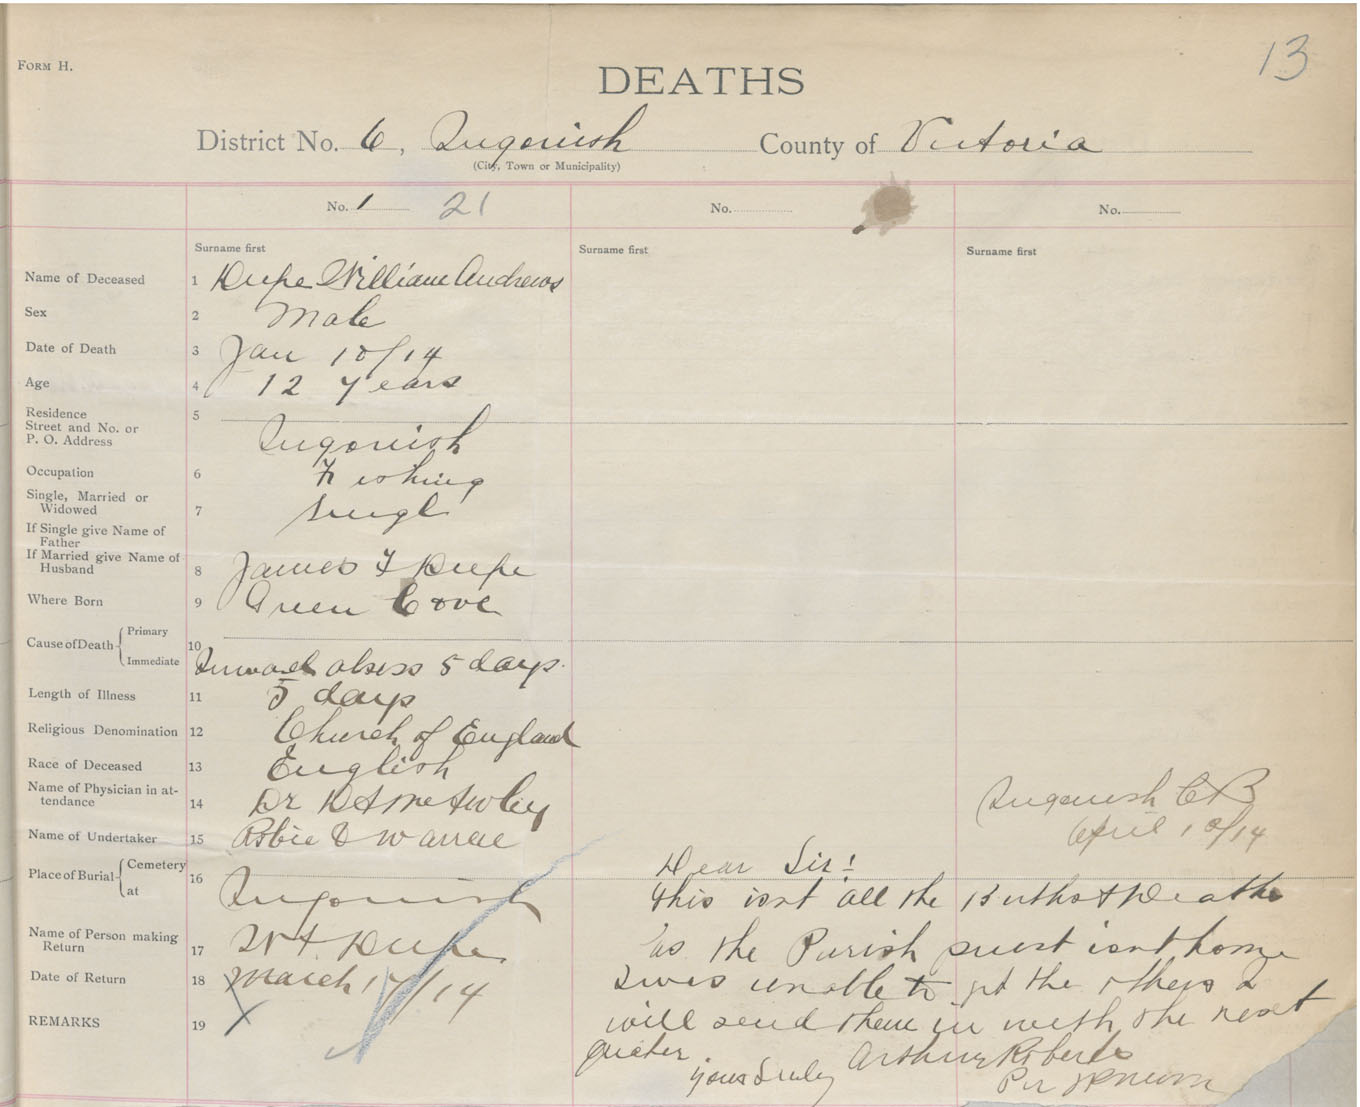 FORM H.
13
DEATHS
District No. 6, Ingonish County of Victoria
(City, Town or Municipality)
No. 1 21
No.
No.
Surname first
Surname first
Surname first
Name of Deceased 1 William Andrews
Sex 2 Male
Date of Death 3 Jan 10/14
Age 4 12 years
Residence
Street and No. or
P. O. Address 5 Ingonish
Occupation 6 Fishing
Single, Married or
Widowed 7 Singl
If Single give Name of
Father
If Married give Name of
Husband 8 James F
Where Born 9 Green Cove
Cause of Death Primary
Immediate 10 Inward absess 5 days.
Length of Illness 11 5 days
Religious Denomination 12 Church of England
Race of Deceased 13 English
Name of Physician in at-
tendance 14 Dr
Name of Undertaker 15
Place of Burial Cemetery
at 16 Ingonish
Name of Person making
Return 17
Date of Return 18 March 17/14
REMARKS 19 X
Ingonish CB
April 10/14
Dear Sir!
this isnt all the Births & Deaths
as the Parish priest isnt home
I was unable to get the others I
will send them in with the next
quater.
Yours Truly Arthur Roberts
Per